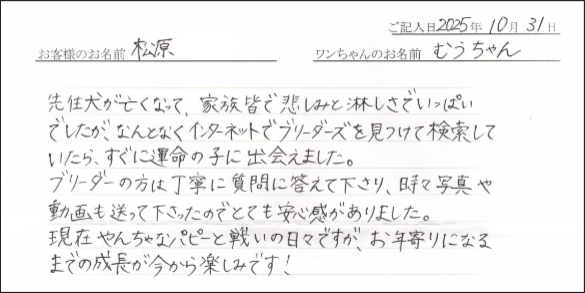 ご記入日2025年10月31日
お客様のお名前 松原 ワンちゃんのお名前 むうちゃん
先住犬が亡くなって、家族皆で悲しみと淋しさでいっぱい
でしたが、なんとなくインターネットでブリーダーズを見つけて検索して
いたら、すぐに運命の子に出会えました。
ブリーダーの方は丁寧に質問に答えて下さり、時々写真や
動画も送って下さったのでとても安心感がありました。
現在やんちゃなパピーと戦いの日々ですが、お年寄りになる
までの成長が今から楽しみです!